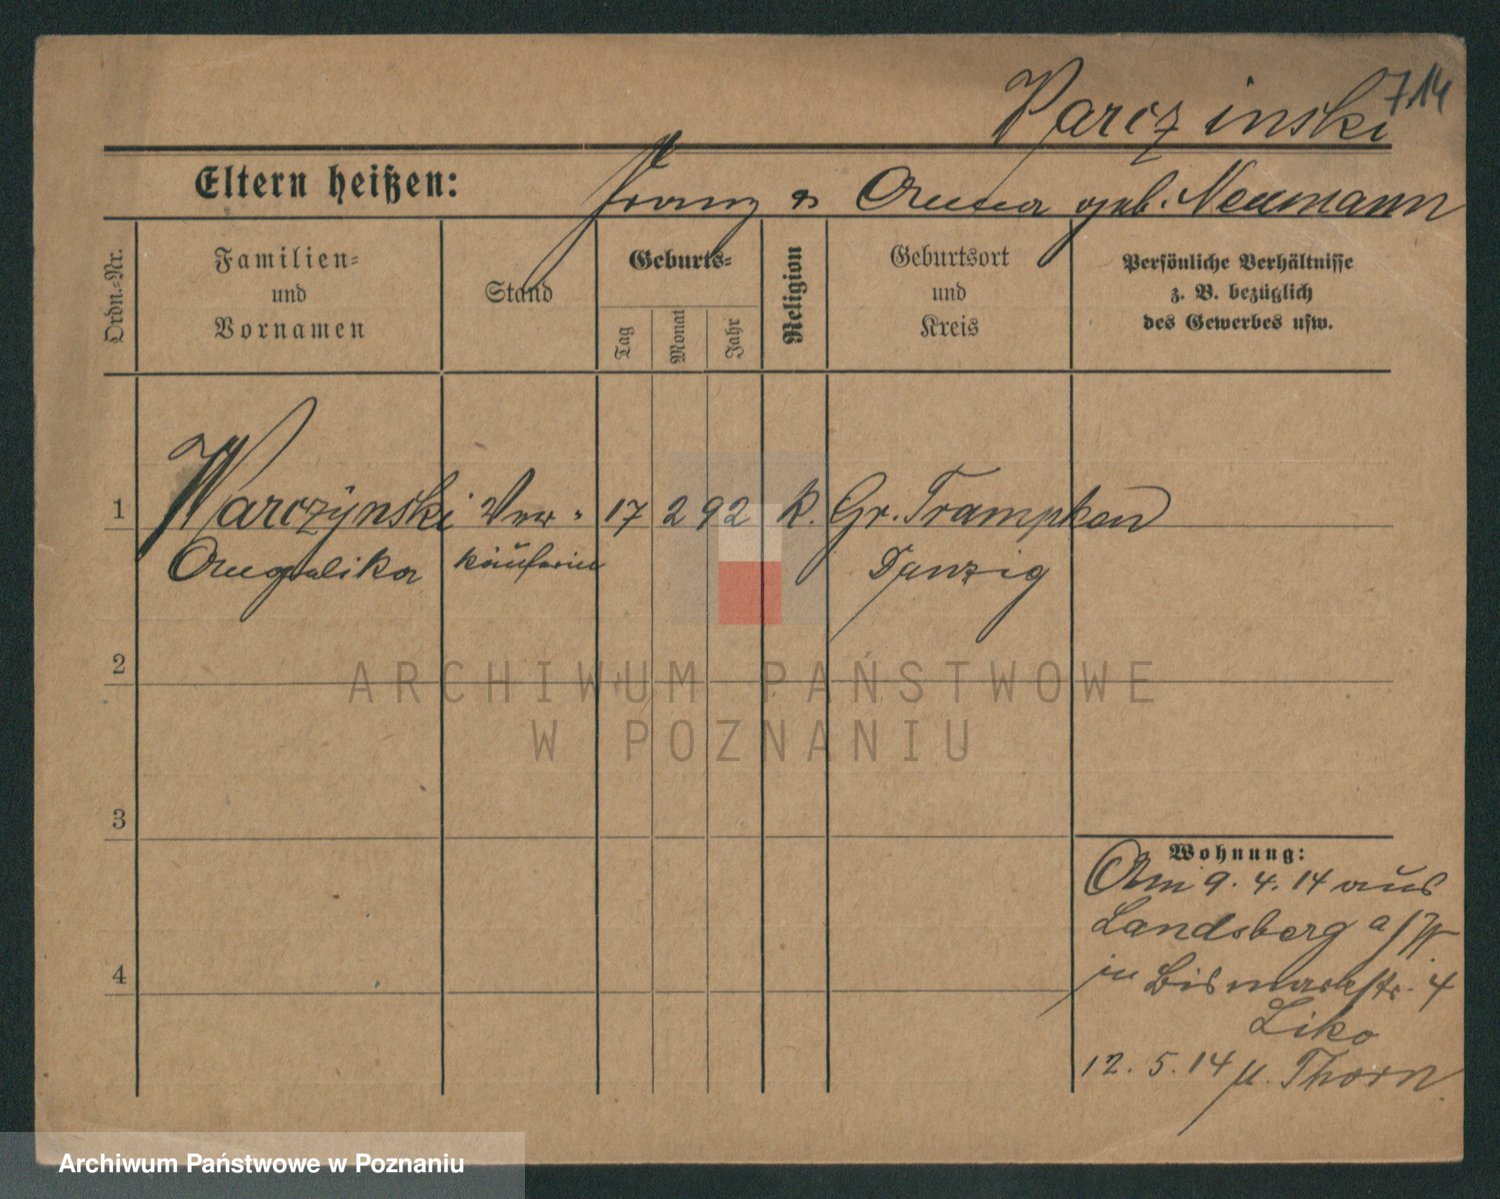 714
Warczinski
Eltern heißen: Franz u Anna geb. Neumann
Ordn.-Nr.
Familien-
und
Vornamen
Stand
Geburts-
Tag
Monat
Jahr
Religion
Geburtsort
und
Kreis
Persönliche Verhältnisse
z. B. bezüglich
des Gewerbes usw.
1 Warczynski Ver- 17 2 92 k. Gr. Trampken
Angelika käuferin Danzig
2
ARCHIWUM PAŃSTWOWE
W POZNANIU
3
Wohnung:
Am 9. 4. 14 aus
Landsberg a/W.
in Bismarckstr. 4
4
12. 5. 14 n. Thorn.
Archiwum Państwowe w Poznaniu